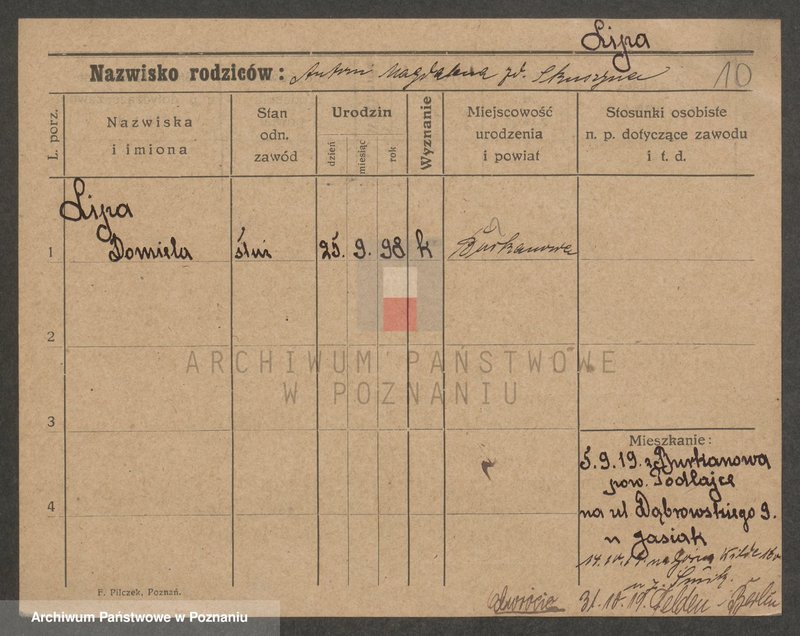 Lipa
Nazwisko rodziców: Antoni Magdalena zd.
10
L. porz.
Nazwiska
i imiona
Stan
odn.
zawód
Urodzin
dzień
miesiąc
rok
Wyznanie
Miejscowość
urodzenia
i powiat
Stosunki osobiste
n. p. dotyczące zawodu
i t. d.
Lipa
1 Domiela 25. 9. 98 k Burkanowa
2
ARCHIWUM PAŃSTWOWE
W POZNANIU
3
Mieszkanie:
5.9.19. z Burkanowa
pow. Podhajce
4
na ul Dąbrowskiego 9.
u Gasiak
14.10.19 na Górna Wilda
31.10.19. Berlin
F. Pilczek, Poznań.
Archiwum Państwowe w Poznaniu